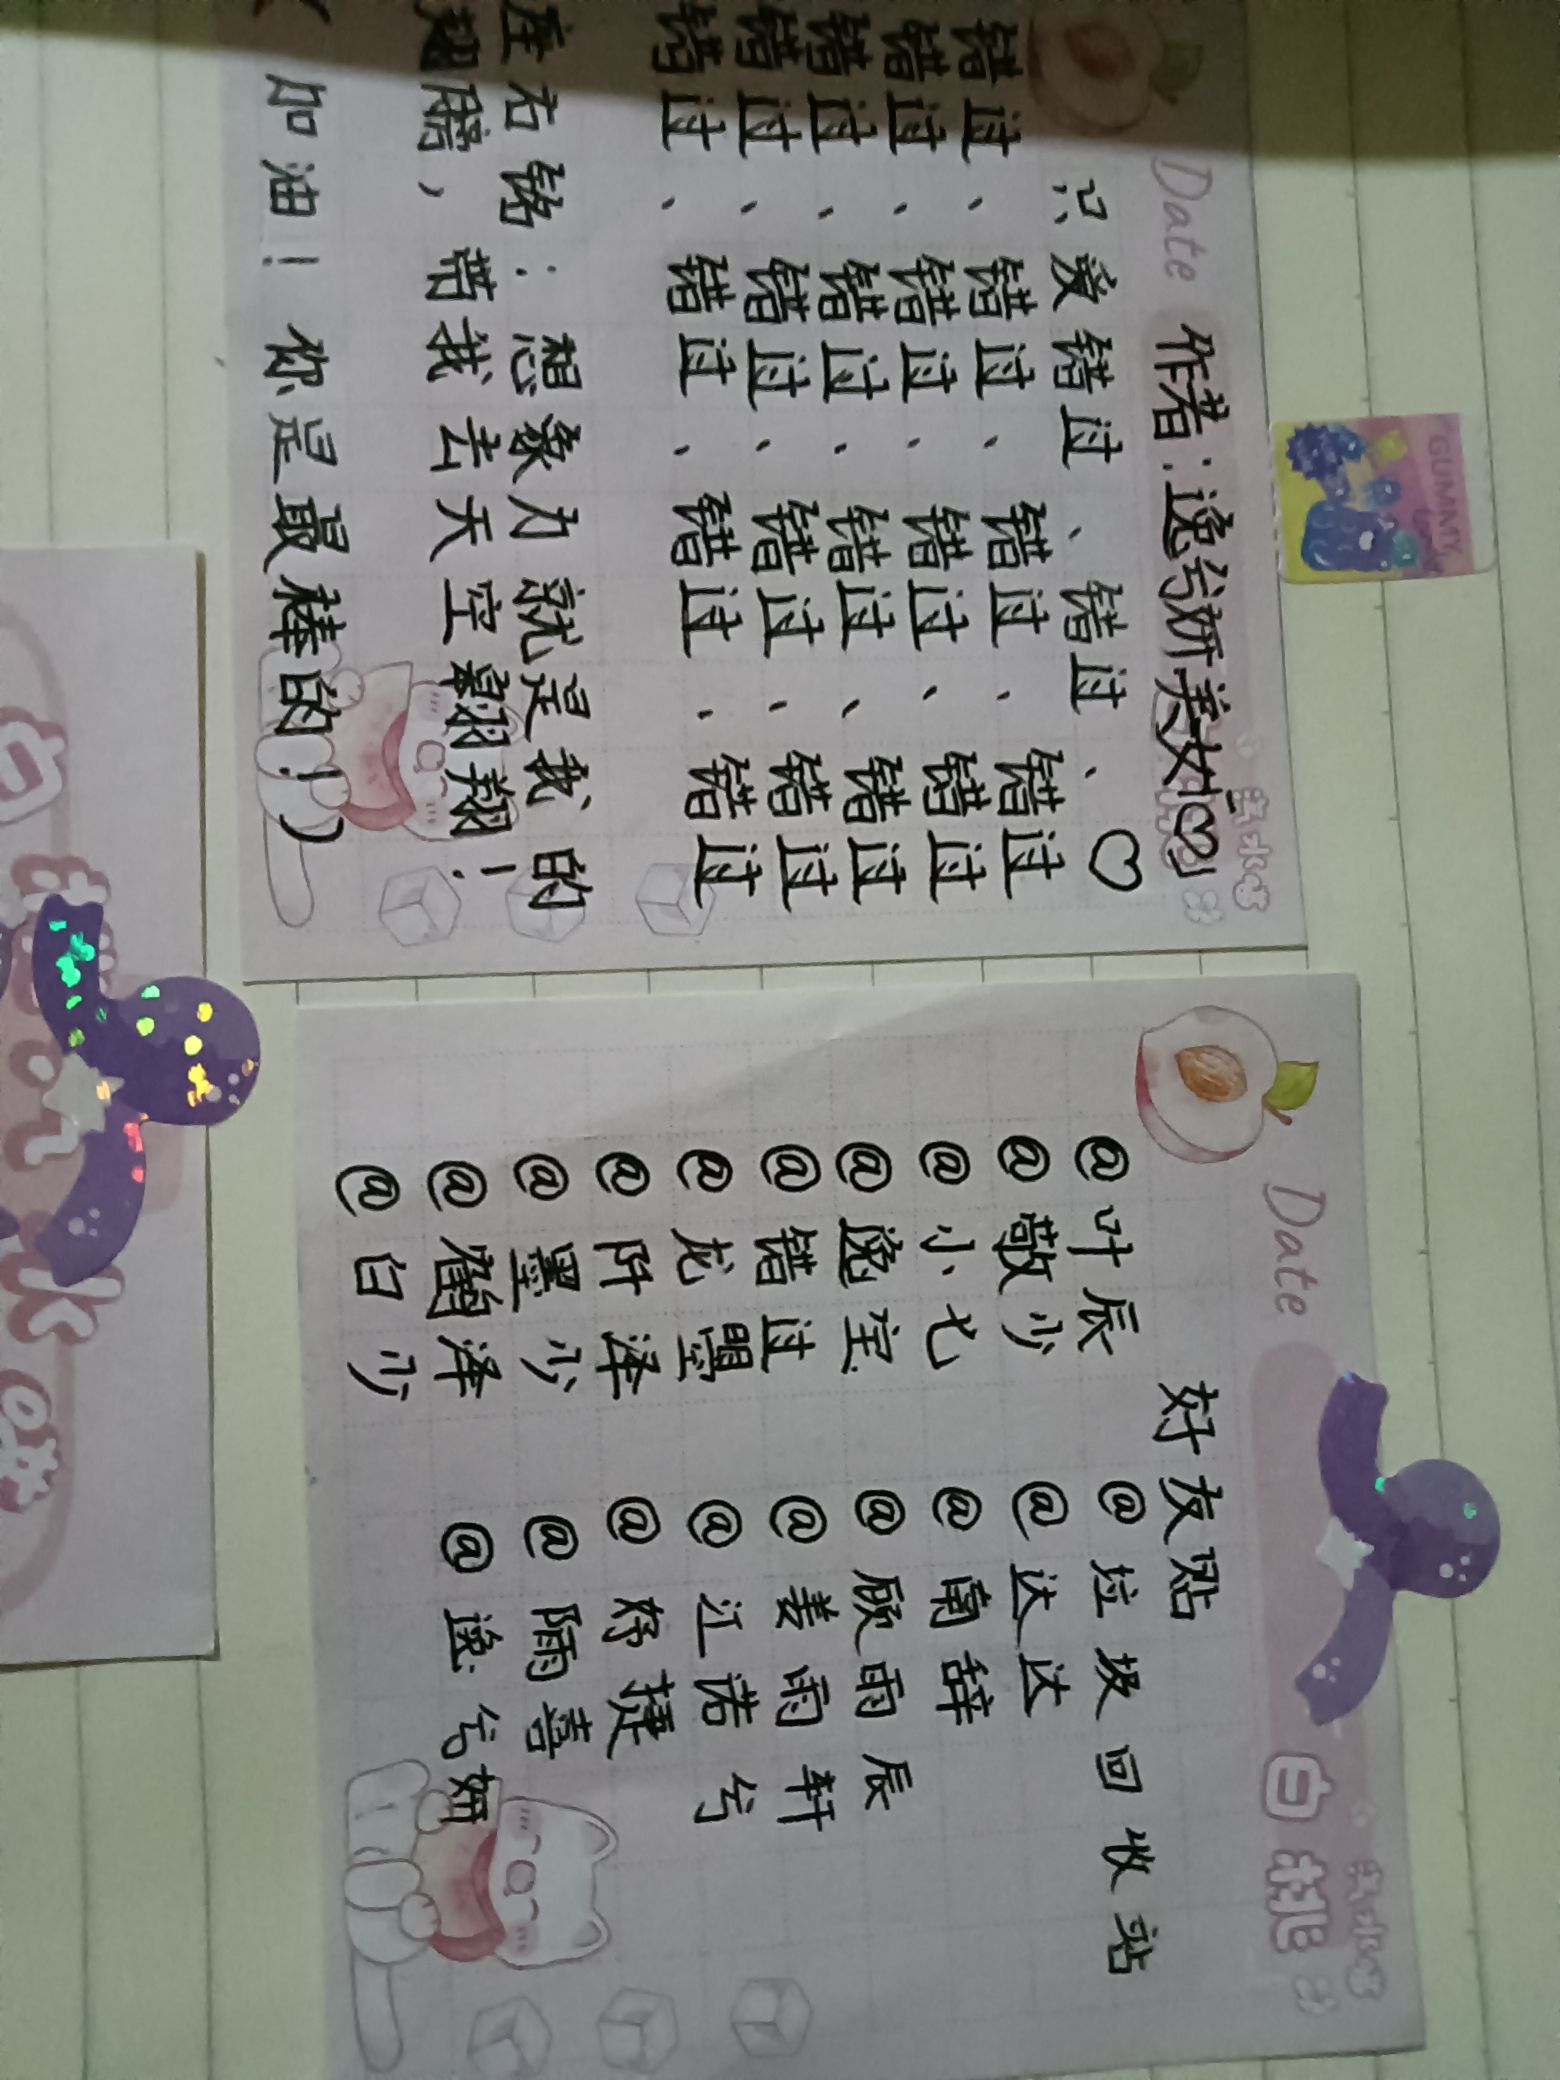 Date
作者:逸兮妍美女♡
只爱错过、错过、♡
错过、错过、错过、错过
错过、错过、错过、错过
错过、错过、错过、错过
错过、错过、错过、错过
错过、错过、错过、错过
座右铭:想象力就是我的
翅膀,带我去天空翱翔!
加油!你是最棒的!)
GUMMY
Date
白桃
好友贴
@叶辰 @垃圾回收站
@敬少 @达达
@小七 @南辞
@逸宝 @顾雨辰
@错过 @姜雨轩
@龙墨 @江诺兮
@阡泽 @妤捷
@墨少 @隔喜
@鹤泽 @逸兮妍
@白少